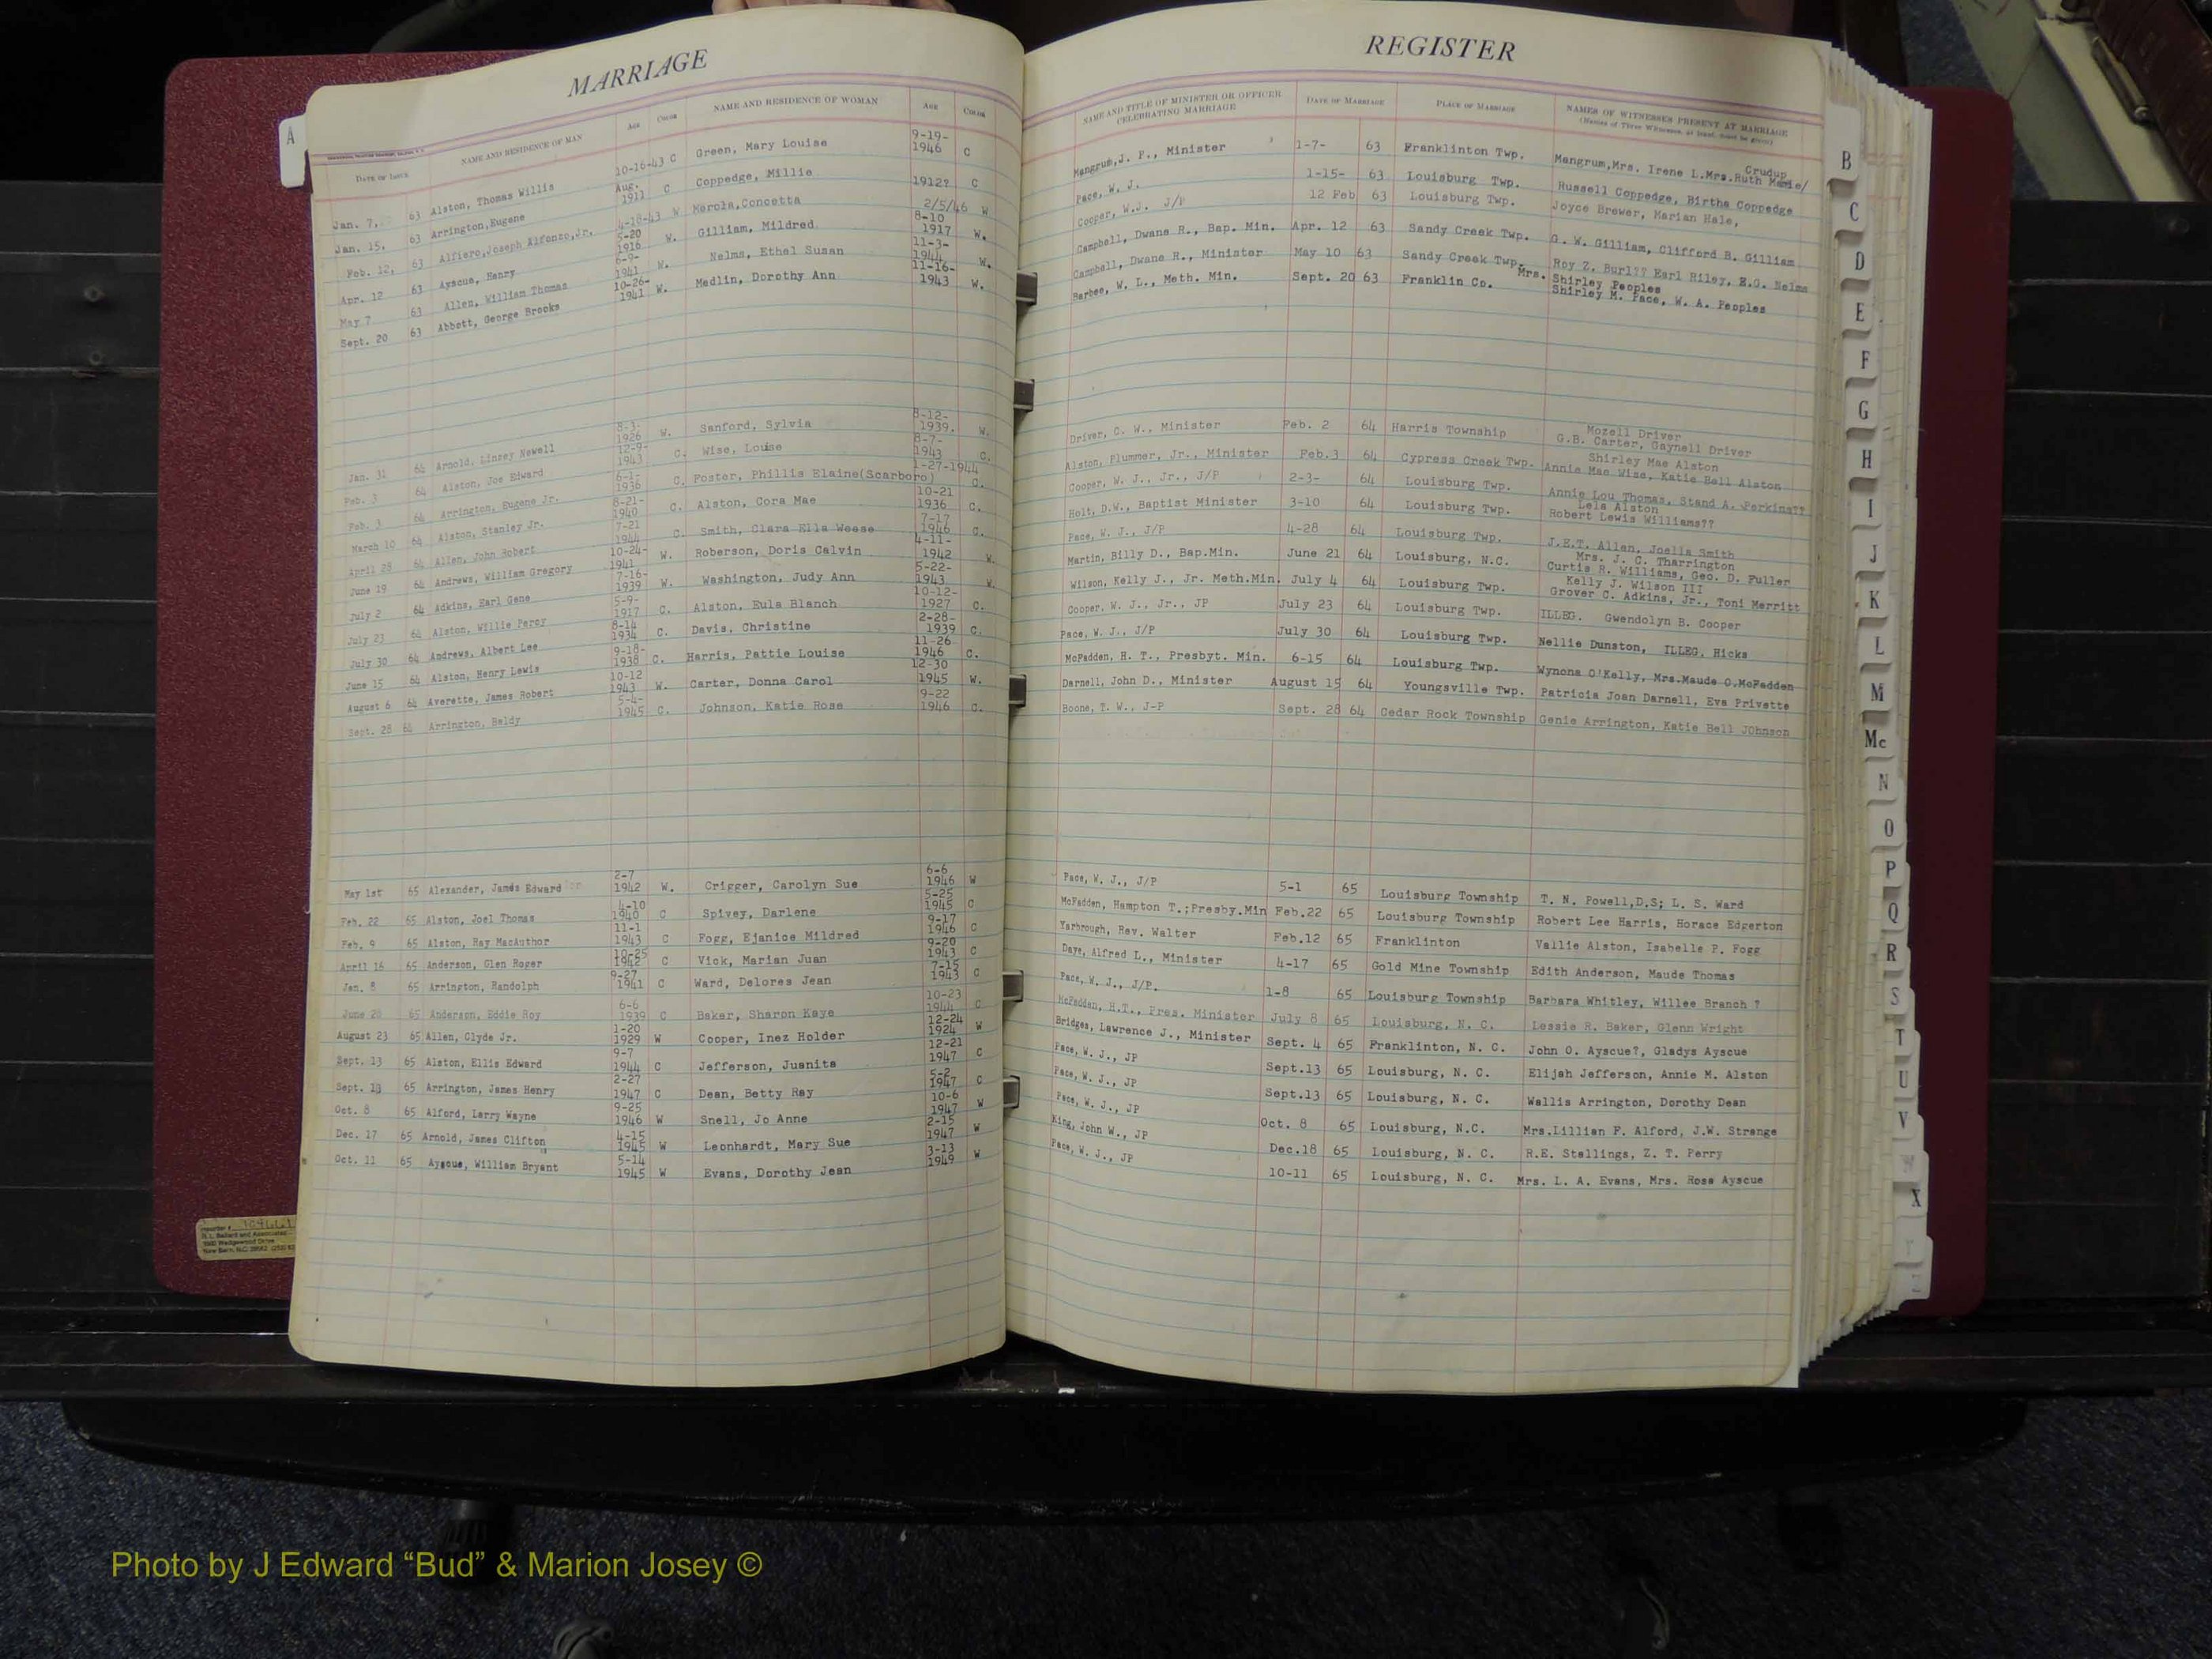 MARRIAGE
REGISTER
A
DATE OF ISSUE NAME AND RESIDENCE OF MAN AGE COLOR NAME AND RESIDENCE OF WOMAN AGE COLOR NAME AND TITLE OF MINISTER OR OFFICER CELEBRATING MARRIAGE DATE OF MARRIAGE PLACE OF MARRIAGE NAMES OF WITNESSES PRESENT AT MARRIAGE
(Names of Three Witnesses, at least, must be given)
Jan. 7, 63 Alston, Thomas Willis 10-16-43 C Green, Mary Louise 9-19-1946 C Mangrum,J. P., Minister 1-7- 63 Franklinton Twp. Mangrum,Mrs. Irene L.Mrs.Ruth Marie/ Crudup
Jan. 15. 63 Arrington,Eugene Aug. 1911 C Coppedge, Millie 1912? C Pace, W. J. 1-15- 63 Louisburg Twp. Russell Coppedge, Birtha Coppedge
Feb. 12, 63 Alfiero,Joseph Alfonzo,Jr. 4-18-43 W Merola,Concetta 2/5/46 W Cooper, W.J. J/P 12 Feb 63 Louisburg Twp. Joyce Brewer, Marian Hale,
Apr. 12 63 Ayscue, Henry 5-20 1916 W. Gilliam, Mildred 8-10 1917 W. Campbell, Dwane R., Bap. Min. Apr. 12 63 Sandy Creek Twp. G. W. Gilliam, Clifford B. Gilliam
May 7 63 Allen, William Thomas 6-9- 1941 W. Nelms, Ethel Susan 11-3- 1944 W. Campbell, Dwane R., Minister May 10 63 Sandy Creek Twp. Roy Z. Burl?? Earl Riley, E.G. Nelms
Sept. 20 63 Abbott, George Brooks 10-26- 1941 W. Medlin, Dorothy Ann 11-16- 1943 W. Barbee, W. L., Meth. Min. Sept. 20 63 Franklin Co. Mrs. Shirley Peoples
Shirley M. Pace, W. A. Peoples
Jan. 31 64 Arnold, Linsey Newell 8-3- 1926 W. Sanford, Sylvia 8-12- 1939. W. Driver, C. W., Minister Feb. 2 64 Harris Township Mozell Driver
G.B. Carter, Gaynell Driver
Feb. 3 64 Alston, Joe Edward 12-9- 1943 C. Wise, Louise 8-7- 1943 C. Alston, Plummer, Jr., Minister Feb.3 64 Cypress Creek Twp. Shirley Mae Alston
Annie Mae Wise, Katie Bell Alston
Feb. 3 64 Arrington, Eugene Jr. 6-1- 1936 C. Foster, Phillis Elaine(Scarboro) 1-27-1944 C. Cooper, W. J., Jr., J/P 2-3- 64 Louisburg Twp. Annie Lou Thomas, Stand A. Perkins??
March 10 64 Alston, Stanley Jr. 8-21- 1940 C. Alston, Cora Mae 10-21 1936 C. Holt, D.W., Baptist Minister 3-10 64 Louisburg Twp. Lela Alston
Robert Lewis Williams??
April 28 64 Allen, John Robert 7-21 1944 C. Smith, Clara Ella Weese 7-17 1946 C. Pace, W. J., J/P 4-28 64 Louisburg Twp. J.E.T. Allen, Joelia Smith
June 19 64 Andrews, William Gregory 10-24- 1941 W. Roberson, Doris Calvin 4-11- 1942 W. Martin, Billy D., Bap.Min. June 21 64 Louisburg, N.C. Mrs. J. C. Tharrington
Curtis R. Williams, Geo. D. Fuller
July 2 64 Adkins, Earl Gene 7-16- 1939 W. Washington, Judy Ann 5-22- 1943 W. Wilson, Kelly J., Jr. Meth.Min. July 4 64 Louisburg Twp. Kelly J. Wilson III
Grover C. Adkins, Jr., Toni Merritt
July 23 64 Alston, Willie Percy 5-9- 1917 C. Alston, Eula Blanch 10-12- 1927 C. Cooper, W. J., Jr., JP July 23 64 Louisburg Twp. ILLEG. Gwendolyn B. Cooper
July 30 64 Andrews, Albert Lee 8-14 1934 C. Davis, Christine 2-28- 1939 C. Pace, W. J., J/P July 30 64 Louisburg Twp. Nellie Dunston, ILLEG. Hicks
June 15 64 Alston, Henry Lewis 9-18- 1938 C. Harris, Pattie Louise 11-26 1946 C. McFadden, H. T., Presbyt. Min. 6-15 64 Louisburg Twp. Wynona O'Kelly, Mrs.Maude O.McFadden
August 6 64 Averette, James Robert 10-12 1943 W. Carter, Donna Carol 12-30 1945 W. Darnell, John D., Minister August 15 64 Youngsville Twp. Patricia Joan Darnell, Eva Privette
Sept. 28 64 Arrington, Baldy 5-4- 1945 C. Johnson, Katie Rose 9-22 1946 C. Boone, T. W., J-P Sept. 28 64 Cedar Rock Township Genie Arrington, Katie Bell JOhnson
May 1st 65 Alexander, James Edward 2-7 1942 W. Crigger, Carolyn Sue 6-6 1946 W Pace, W. J., J/P 5-1 65 Louisburg Township T. N. Powell,D.S; L. S. Ward
Feb. 22 65 Alston, Joel Thomas 4-10 1940 C Spivey, Darlene 5-25 1945 C McFadden, Hampton T.;Presby.Min Feb.22 65 Louisburg Township Robert Lee Harris, Horace Edgerton
Feb. 9 65 Alston, Ray MacAuthor 11-1 1943 C Fogg, Ejanice Mildred 9-17 1946 C Yarbrough, Rev. Walter Feb.12 65 Franklinton Vallie Alston, Isabelle P. Fogg
April 16 65 Anderson, Glen Roger 10-25 1942 C Vick, Marian Juan 9-20 1943 C Daye, Alfred L., Minister 4-17 65 Gold Mine Township Edith Anderson, Maude Thomas
Jan. 8 65 Arrington, Randolph 9-27 1941 C Ward, Delores Jean 7-15 1943 C Pace, W. J., J/P. 1-8 65 Louisburg Township Barbara Whitley, Willee Branch ?
June 28 65 Anderson, Eddie Roy 6-6 1939 C Baker, Sharon Kaye 10-23 1944 C McFadden, H.T., Pres. Minister July 8 65 Louisburg, N. C. Lessie R. Baker, Glenn Wright
August 23 65 Allen, Clyde Jr. 1-20 1929 W Cooper, Inez Holder 12-24 1924 W Bridges, Lawrence J., Minister Sept. 4 65 Franklinton, N. C. John O. Ayscue?, Gladys Ayscue
Sept. 13 65 Alston, Ellis Edward 9-7 1944 C Jefferson, Juanita 12-21 1947 C Pace, W. J., JP Sept.13 65 Louisburg, N. C. Elijah Jefferson, Annie M. Alston
Sept. 13 65 Arrington, James Henry 2-27 1947 C Dean, Betty Ray 5-2 1947 C Pace, W. J., JP Sept.13 65 Louisburg, N. C. Wallis Arrington, Dorothy Dean
Oct. 8 65 Alford, Larry Wayne 9-25 1946 W Snell, Jo Anne 10-6 1947 W Pace, W. J., JP Oct. 8 65 Louisburg, N.C. Mrs.Lillian F. Alford, J.W. Strange
Dec. 17 65 Arnold, James Clifton 4-15 1945 W Leonhardt, Mary Sue 2-15 1947 W King, John W., JP Dec.18 65 Louisburg, N. C. R.E. Stallings, Z. T. Perry
Oct. 11 65 Ayscue, William Bryant 5-14 1945 W Evans, Dorothy Jean 3-13 1949 W Pace, W. J., JP 10-11 65 Louisburg, N. C. Mrs. L. A. Evans, Mrs. Rosa Ayscue
B
C
D
E
F
G
H
I
J
K
L
M
Mc
N
O
P
Q
R
S
T
U
V
W
X
Y
Z
Photo by J Edward “Bud” & Marion Josey ©